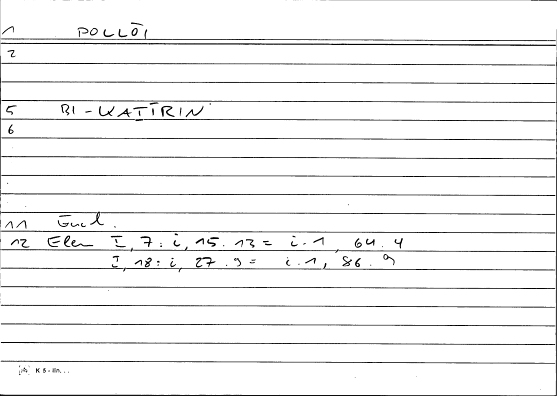 1 POLLOÍ
2
5 BI-KAṮĪRIN
6
11 Eucl.
12 Elem I, 7: i, 15.13 = i.1, 64.4
I, 18: i, 27.9 = i.1, 86.9
K 5 - IIn...